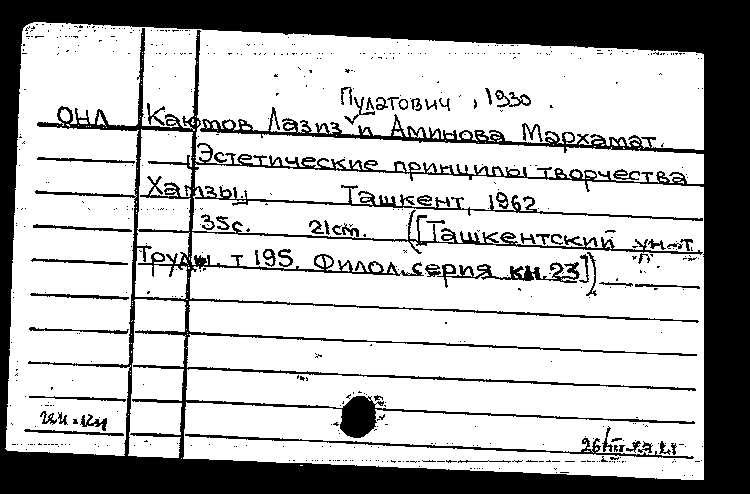 Пулатович, 1930.
ОНЛ Каюмов Лазиз и Аминова Мархамат.
Эстетические принципы творчества
Хамзы. Ташкент, 1962
35с. 21cm. ([Ташкентский ун-т.
Труды. т 195. Филол. серия кн. 23])